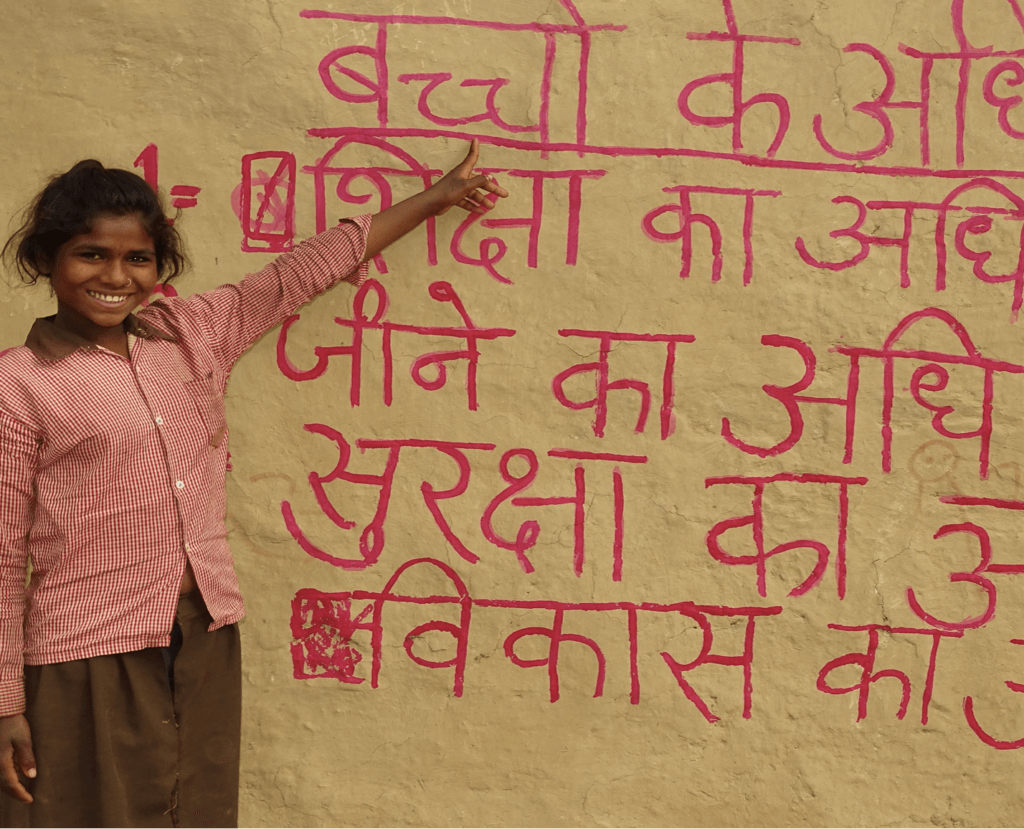 बच्चो के अधि
1 = शिक्षा का अधि
जीने का अधि
सुरक्षा का अ
विकास का अ